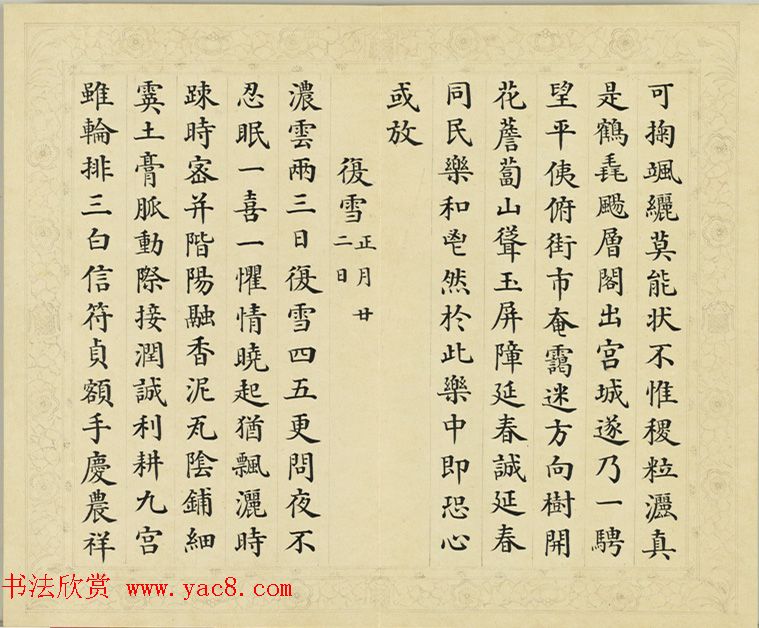 可掬颯纚莫能状不惟稷粒灑真
是鶴毳颺層閣出宫城遂乃一騁
望平侇俯街市奄靄迷方向樹開
花薝蔔山聳玉屏障延春誠延春
同民樂和鬯然於此樂中即恐心
或放
復雪 正月廿二日
濃雲兩三日復雪四五更問夜不
忍眠一喜一懼情曉起猶飄灑時
踈時宻并階陽融香泥瓦陰鋪細
霙土膏脈動際接潤誠利耕九宫
雖輪排三白信符貞額手慶農祥
书法欣赏 www.yac8.com